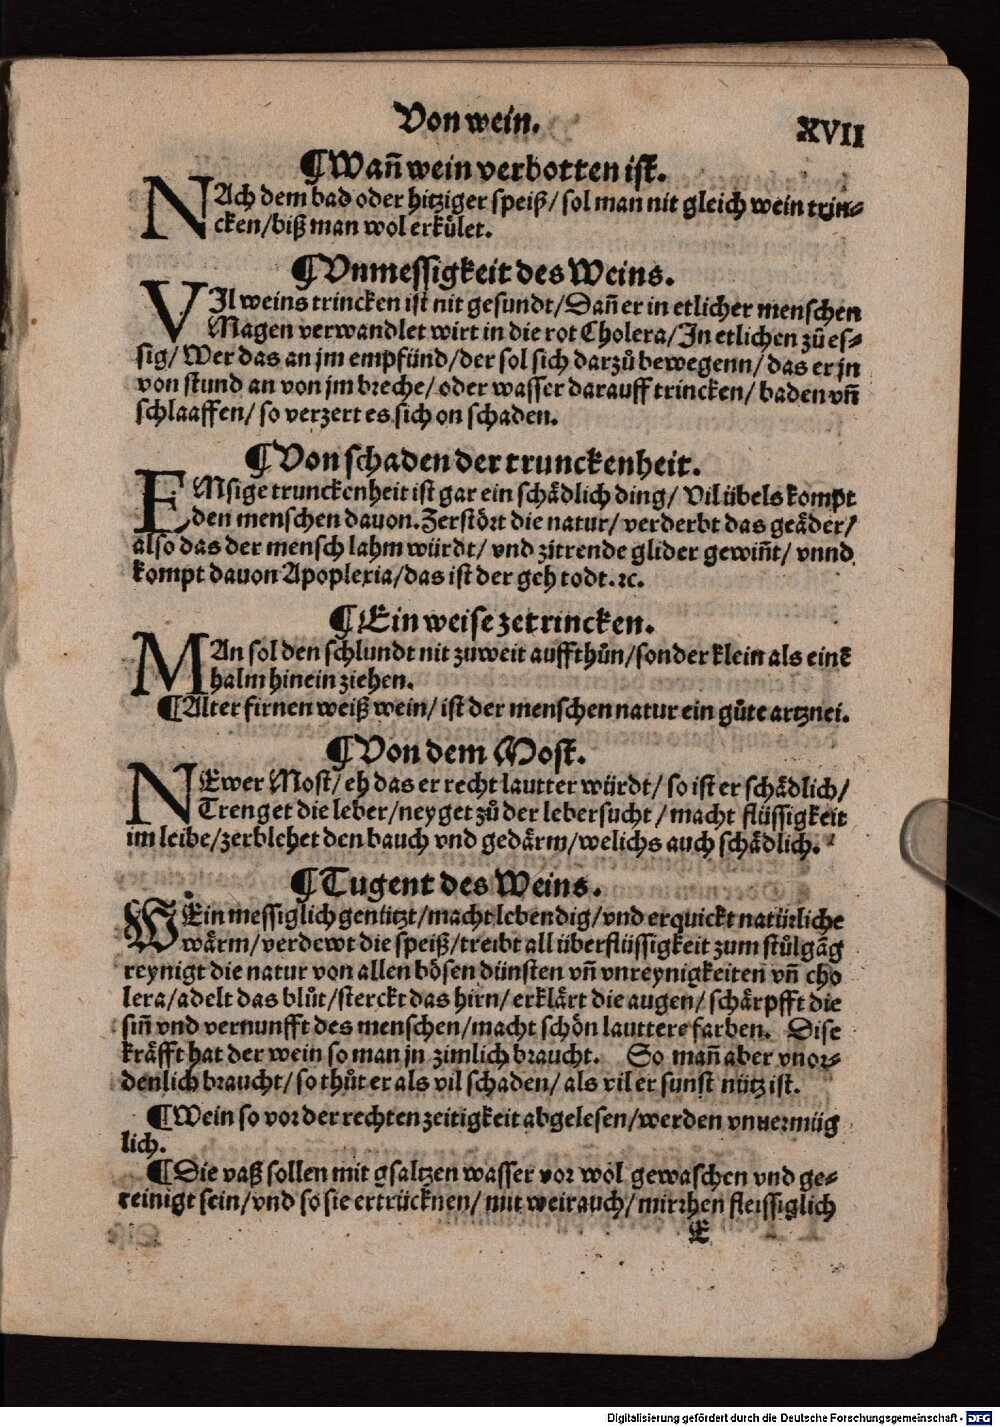 Von wein.
XVII
¶Wañ wein verbotten ist.
NAch dem bad oder hitziger speiß/ sol man nit gleich wein trin⸗
cken/biß man wol erkület.
¶Vnmessigkeit des Weins.
VIl weins trincken ist nit gesundt/Dañ er in etlicher menschen
Magen verwandlet wirt in die rot Cholera/In etlichen zů es⸗
sig/ Wer das an jm empfünd/der sol sich darzů bewegenn/das er jn
von stund an von jm breche/ oder wasser darauff trincken/ baden vñ
schlaaffen/ so verzert es sich on schaden.
¶Von schaden der trunckenheit.
EMsige trunckenheit ist gar ein schådlich ding/ Vil übels kompt
den menschen dauon. Zerstört die natur/ verderbt das geåder/
also das der mensch lahm würdt/ vnd zitrende glider gewiñt/ vnnd
kompt dauon Apoplexia/das ist der geh todt.ꝛc.
¶Ein weise ze trincken.
MAn sol den schlundt nit zuweit auffthůn/sonder klein als einẽ
halm hinein ziehen.
¶Alter firnen weiß wein/ ist der menschen natur ein gůte artznei.
¶Von dem Most.
NEwer Most/ eh das er recht lautter würdt/ so ist er schådlich/
Trenget die leber/neyget zů der lebersucht/ macht flüssigkeit
im leibe/zerblehet den bauch vnd gedårm/welichs auch schådlich.
¶Tugent des Weins.
WEin messiglich genützt/macht lebendig/vnd erquickt natürliche
wårm/verdewt die speiß/treibt all überflüssigkeit zum stůlgãg
reynigt die natur von allen bösen dünsten vñ vnreynigkeiten vñ cho
lera/adelt das blůt/sterckt das hirn/erklårt die augen/ schårpfft die
siñ vnd vernunfft des menschen/macht schön lauttere farben. Dise
kråfft hat der wein so man jn zimlich braucht. So mañ aber vnor⸗
denlich braucht/ so thůt er als vil schaden/ als vil er sunst nütz ist.
¶Wein so vor der rechten zeitigkeit abgelesen/werden vnuermüg
lich.
¶Die vaß sollen mit gsaltzen wasser vor wol gewaschen vnd ge⸗
reinigt sein/vnd so sie ertrücknen/ mit weirauch/ mirrhen fleissiglich
E
Digitalisierung gefördert durch die Deutsche Forschungsgemeinschaft - DFG